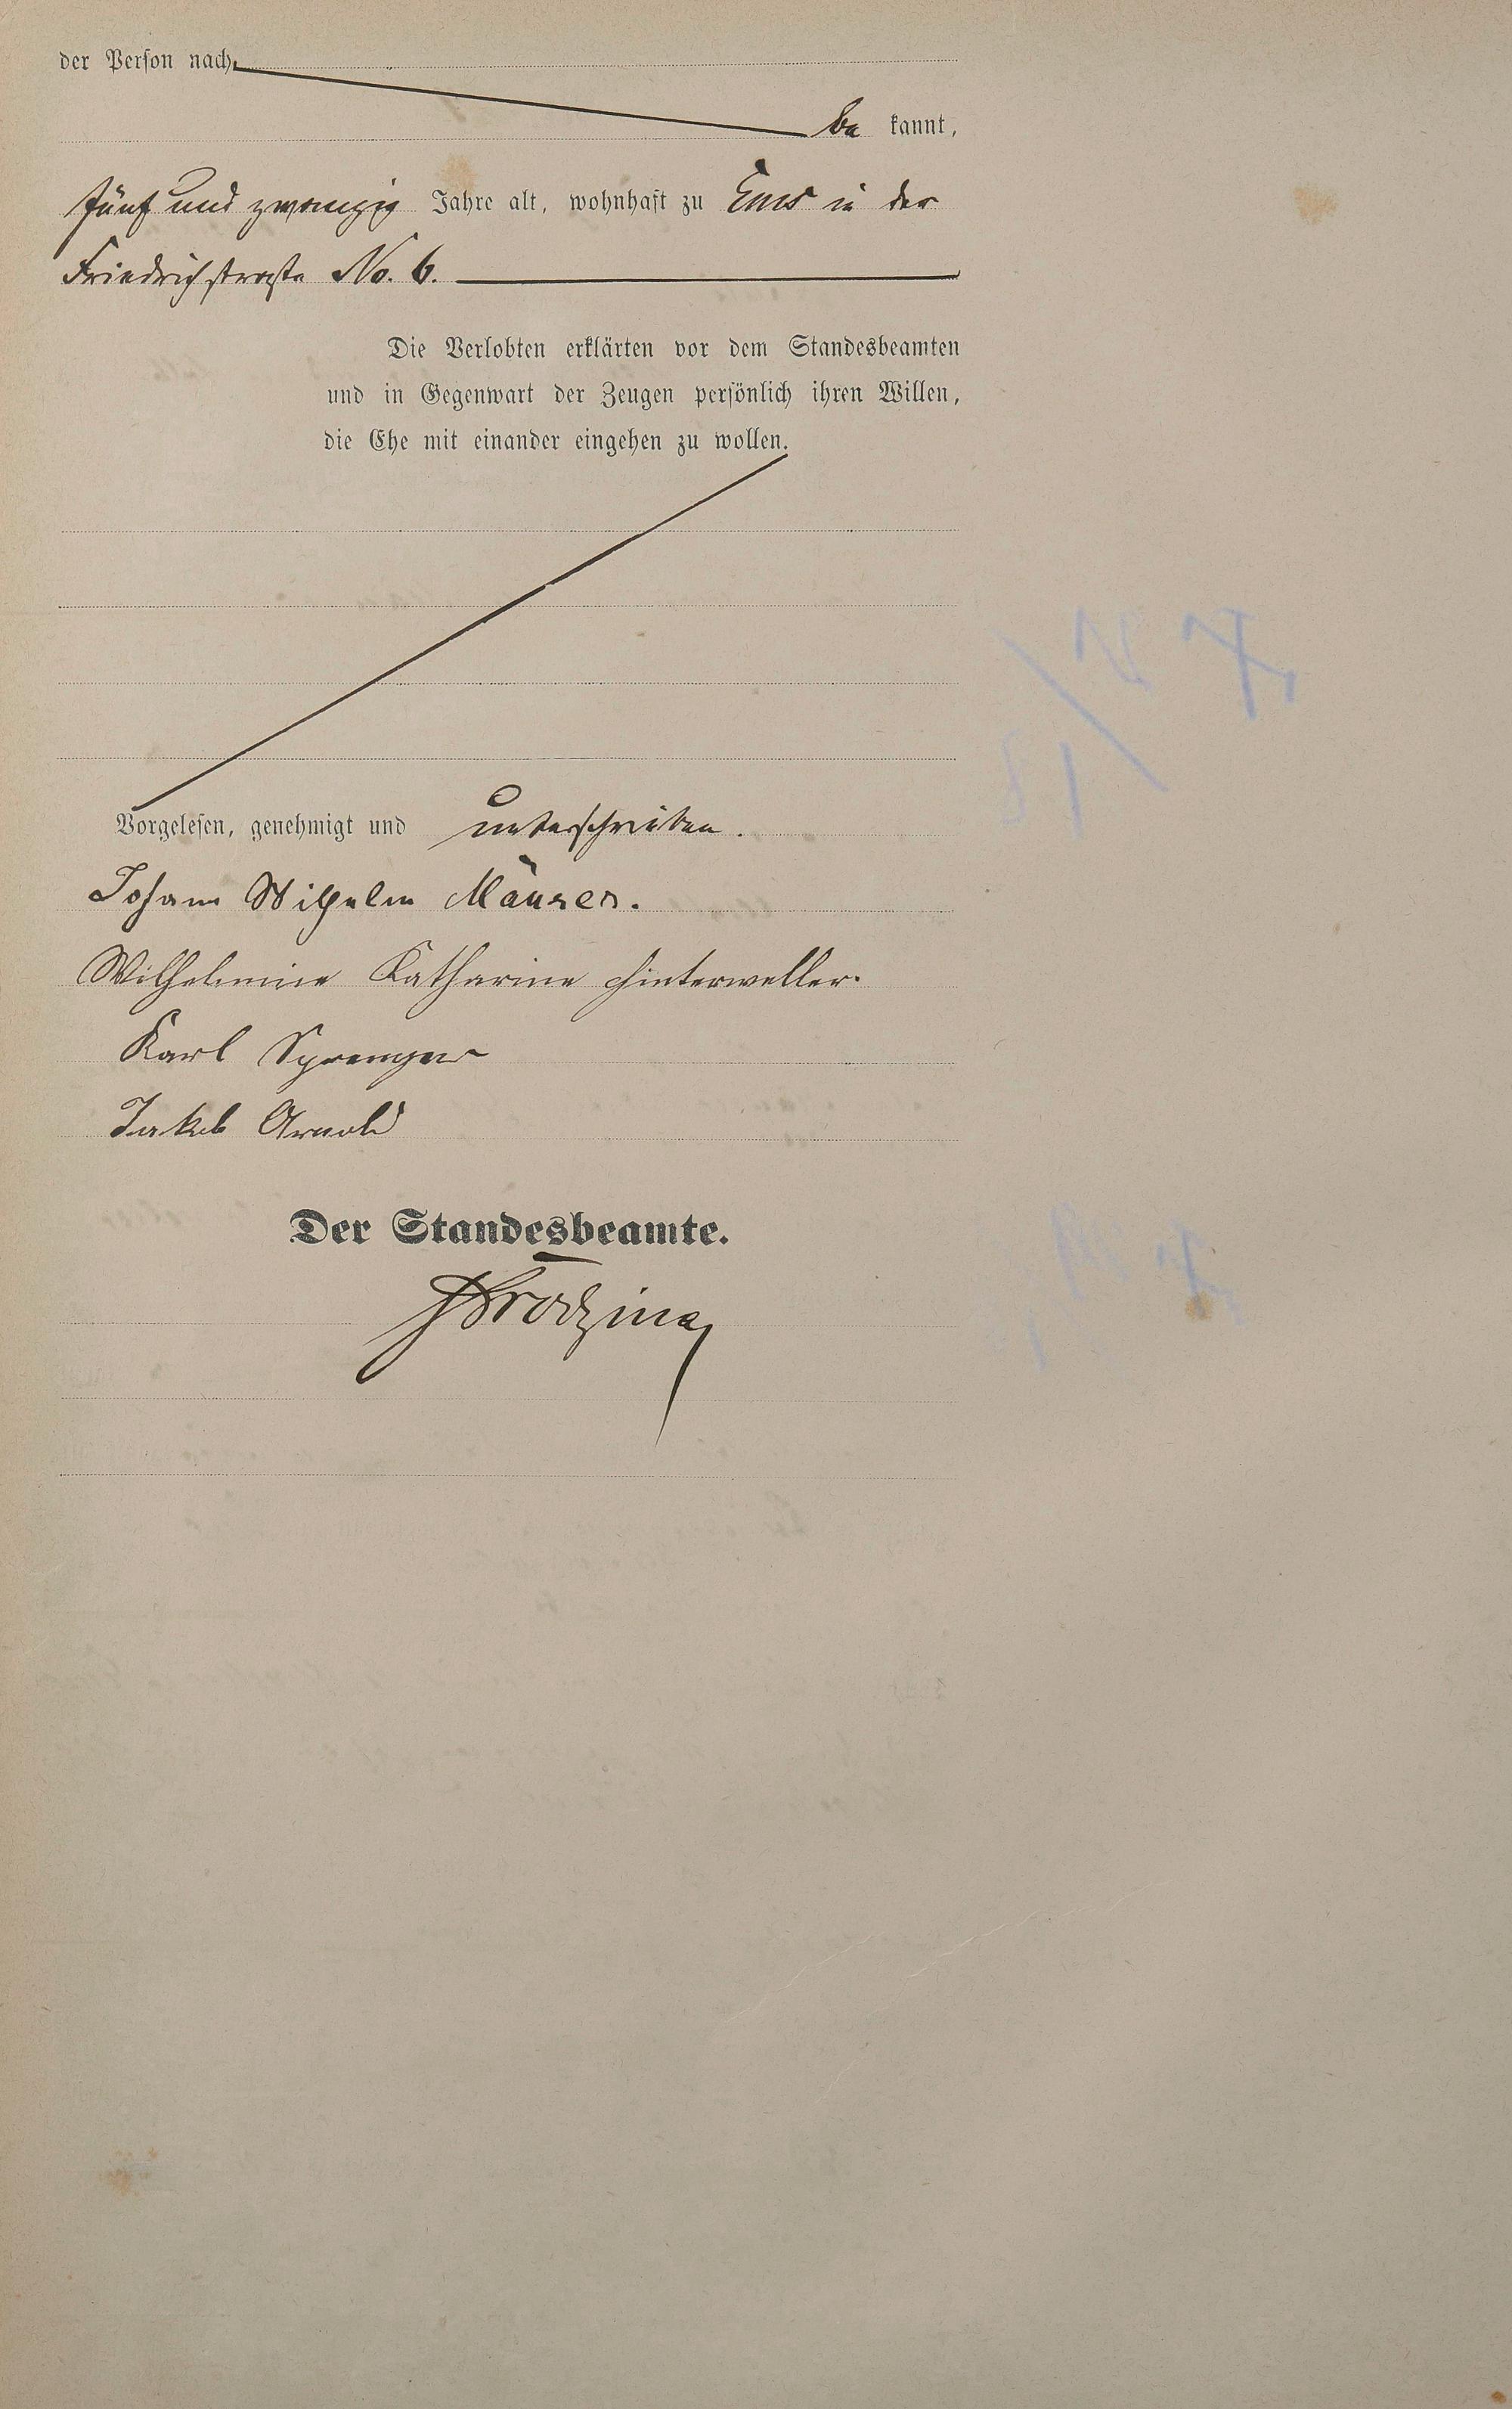 der Person nach
be kannt,
fünf und zwanzig Jahre alt, wohnhaft zu Ems in der
Friedrichstraße No. 6.
Die Verlobten erklärten vor dem Standesbeamten
und in Gegenwart der Zeugen persönlich ihren Willen,
die Ehe mit einander eingehen zu wollen.
Vorgelesen, genehmigt und unterschrieben.
Johann Wilhelm Mäurer.
Wilhelmine Katharine Hinterweller.
Karl Sprenger
Jakob Arnold
Der Standesbeamte.